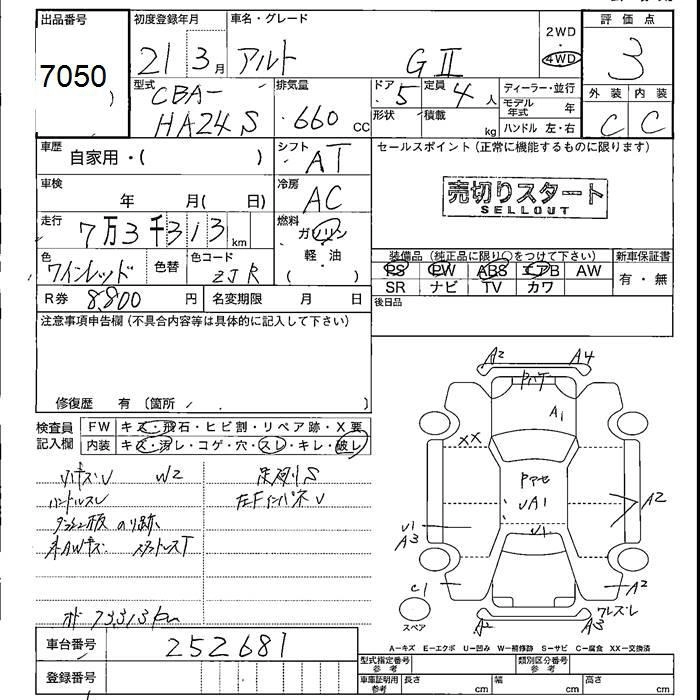 出品番号 初度登録年月 車名・グレード 評価点
7050 21 3月 アルト GⅡ 2WD・4WD 3
型式 CBA- HA24S 排気量 660cc ドア 5 定員 4人 形状 積載 kg
ディーラー・並行 モデル年式 年 ハンドル 左・右
外装 内装
C C
車歴 自家用・( ) シフト AT
セールスポイント (正常に機能するものに限ります)
車検 年 月( 日) 冷房 AC
売切りスタート
SELLOUT
走行 7万3千313km 燃料 ガソリン 軽油 ( )
色 ワインレッド 色替 色コード ZJR
装備品 (純正品に限り○をつけて下さい) 新車保証書
PS PW ABS エアB AW 有・無
SR ナビ TV カワ
R券 8,800円 名変期限 月 日
後日品
注意事項申告欄 (不具合内容等は具体的に記入して下さい)
修復歴 有 (箇所 )
検査員記入欄
FW キズ・飛石・ヒビ割・リペア跡・X要
内装 キズ・汚レ・コゲ・穴・スレ・キレ・破レ
小キズU W2
ハンドルスレ
ダッシュ板 のり跡
社AWキズ スタットレスT
左Fインパネ U
メーター 73,313km
A2 A4
A1
XX
UA1
U1
U1
A3
A2
C1
スペア
A2
ワレズレ
A2 A3
A-キズ E-エクボ U-凹み W-補修跡 S-サビ C-腐食 XX-交換済
車台番号 252681
登録番号
型式指定番号 参考 類別区分番号 参考
車庫証明用 参考 長さ cm 幅 cm 高さ cm